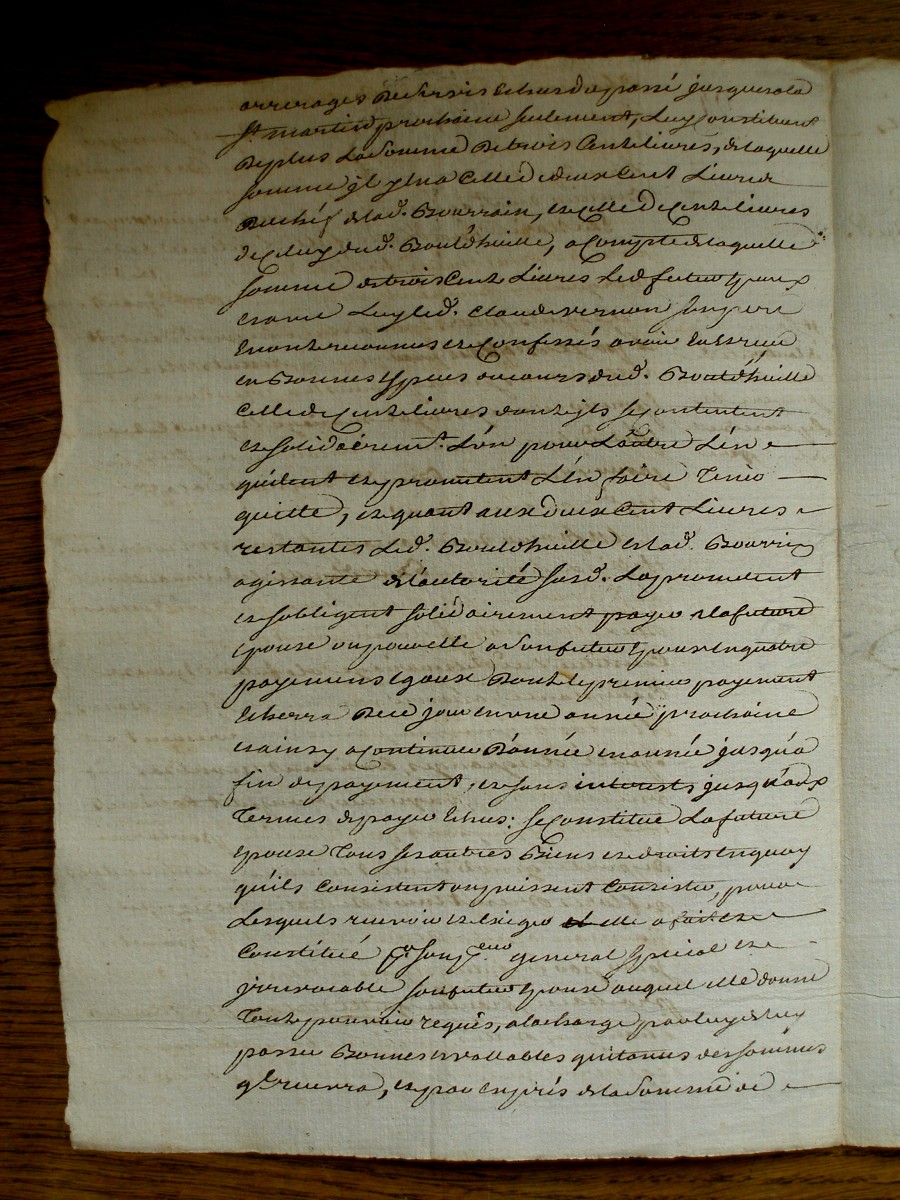 arrerages de cens Echus du passé jusques a la
St martin prochaine seulement, luy constituant
de plus la somme de trois Cent livres, de laquelle
somme jl y en a Celle de deux Cent Livres
du chéf de lad. Bourrain, et celle de Cent livres
de Celuy dud. Bouldhuille, a Compte de laquelle
somme de trois Cent Livres led futeur Epoux
et avec luy led. Claude vernon son pere
En ont reconnus et Confessés avoir En Et reçeu
en Bonnes Especes au cours dud. Bouldhuille
Celle de Cent livres dont jls se contentent
et solidairemt. L'un pour L'autre L'én
quittent et promettent L'én faire Tenir
quitte, et quant aux deux Cent Livres
restantes Led. Bouldhuille et lad. Bourrin
agissante de l'autorité susd. La promettent
et sobligent solidairement payer a la future
Epouse ou pour elle a son futeur Epoux En quatre
payemens Egaux Dont le premier payement
Echerra De ce jour en une année prochaine
et ainsy a Continuer D'année en année jusqu'a
fin de payement, et sans interests jusqu'aux
Termes de payer Echus: se Constitue La future
Epouse Tous ses autres Biens et droits En quoy
qu'ils Consistent ou puissent Consister, pour
Lesquels recevoir et Exiger elle a fait et
Constitué pr son preur general special et
jrrevocable son futeur Epoux auquel elle donne
Tout pouvoir requis, a la charge par luy de luy
passer Bonnes et vallables quitances des sommes
ql recevra, et par Exprés de la Somme de